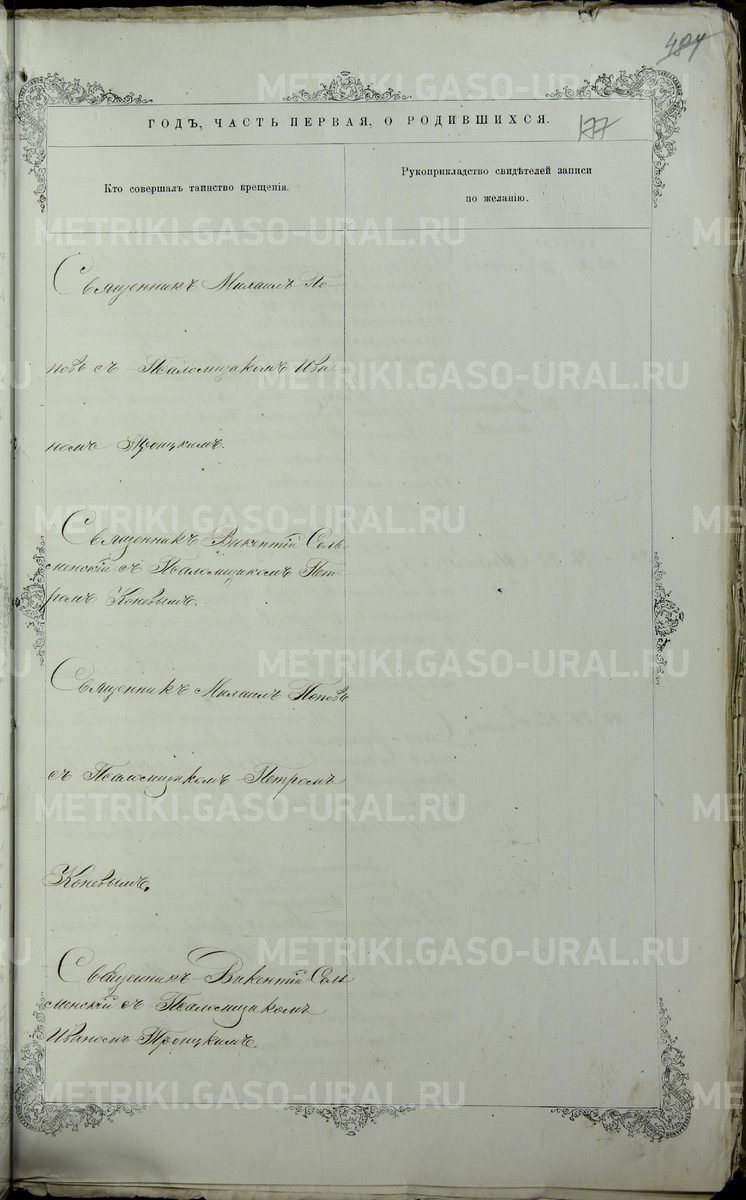 484
ГОДЪ, ЧАСТЬ ПЕРВАЯ, О РОДИВШИХСЯ.
177
Кто совершалъ таинство крещенія.
Рукоприкладство свидѣтелей записи
по желанію.
Священникъ Михаилъ По-
повъ съ Псаломщикомъ Ива-
номъ Троицкимъ.
Священникъ Викентій Сель-
менскій съ Псаломщикомъ Пет-
ромъ Коневымъ.
Священникъ Михаилъ Поповъ
съ Псаломщикомъ Петромъ
Коневымъ.
Священникъ Викентій Сель
менскій съ Псаломщикомъ
Иваномъ Троицкимъ.
METRIKI.GASO-URAL.RU